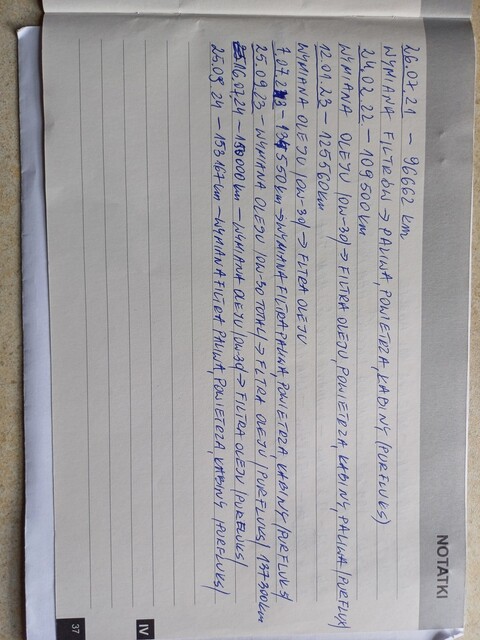 NOTATKI
26.07.21 – 96662 km
WYMIANA FILTRÓW → PALIWA, POWIETRZA, KABINY (PURFLUKS)
24.02.22 – 109500km
WYMIANA OLEJU (0W-30) → FILTRA OLEJU, POWIETRZA, KABINY, PALIWA (PURFLUX)
12.01.23 – 125560km
WYMIANA OLEJU (0W-30) → FILTRA OLEJU
7.07.23 – 134550km → WYMIANA FILTRA PALIWA, POWIETRZA, KABINY (PURFLUKS)
25.09.23 – WYMIANA OLEJU (0W-30 TOTAL) → FILTRA OLEJU (PURFLUKS) 137300km
16.07.24 – 150000km – WYMIANA OLEJU (0W-30) → FILTRA OLEJU (PURFLUKS)
25.09.24 – 153167km – WYMIANA FILTRA PALIWA, POWIETRZA, KABINY (PURFLUKS)
IV
37